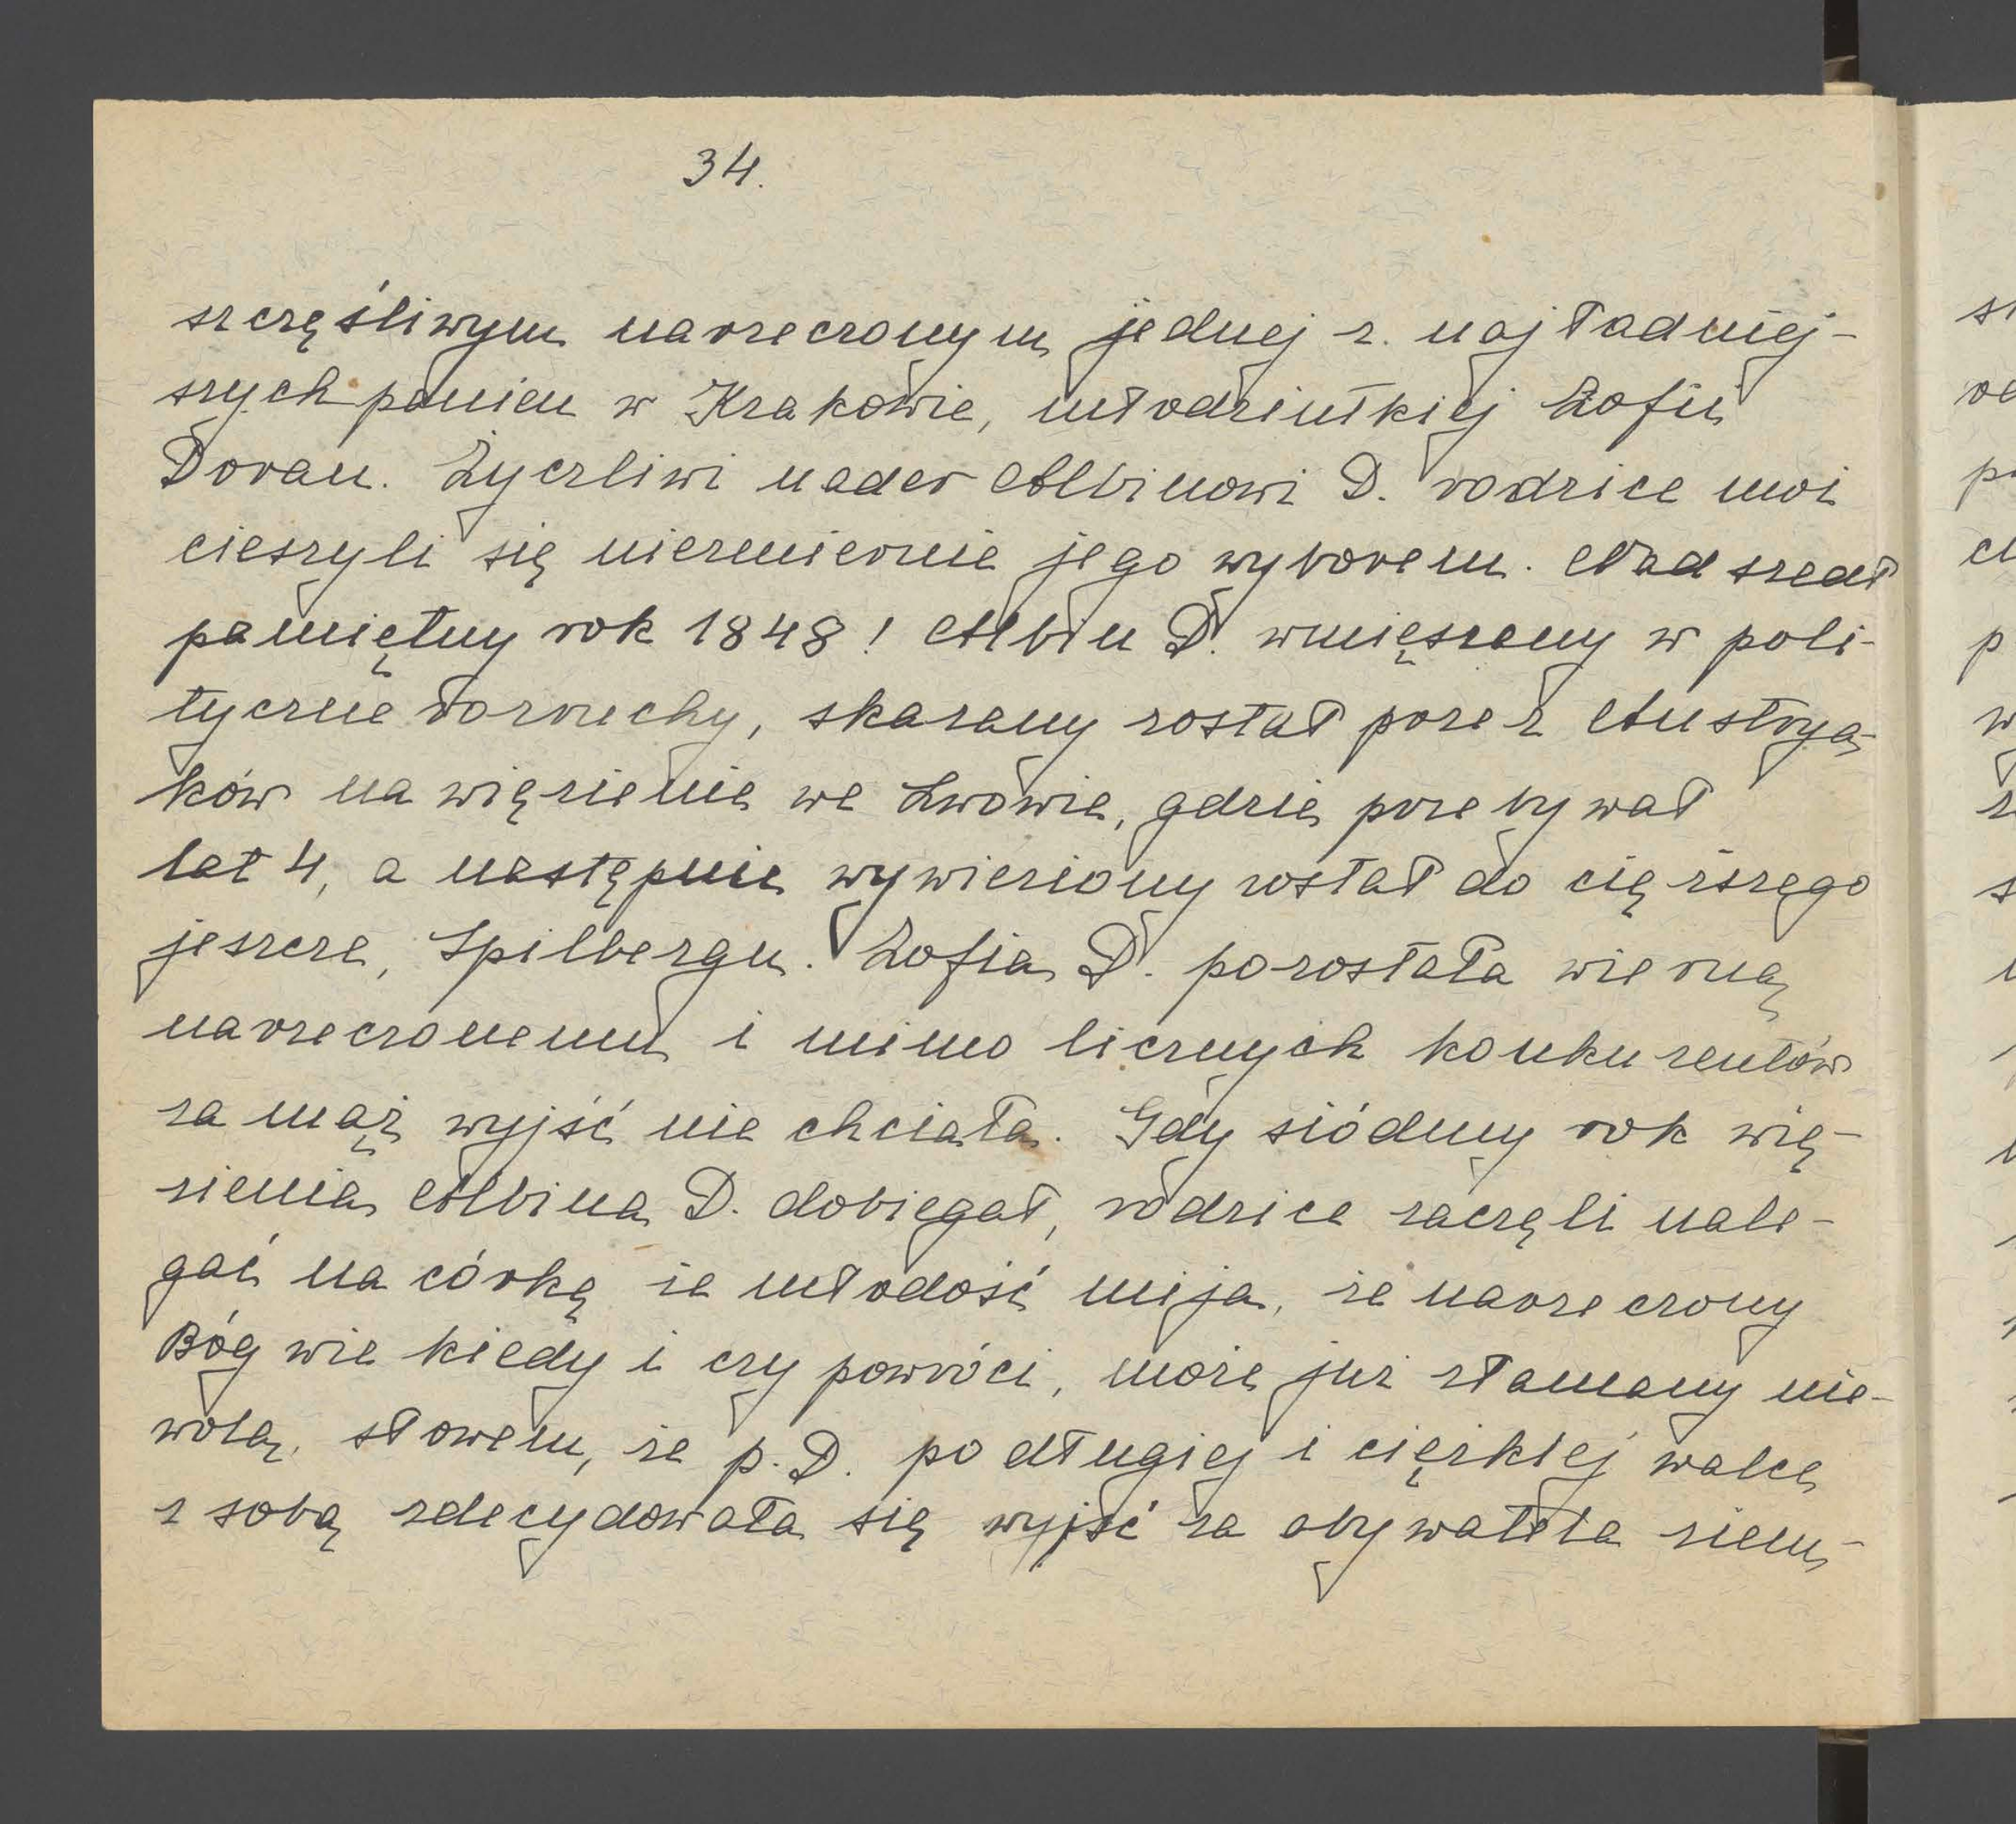 34.
szczęśliwym narzeczonym jednej z najładniej-
szych panien w Krakowie, młodziutkiej Zofii
Doran. Życzliwi nader Albinowi D. rodzice moi
cieszyli się niezmiernie jego wyborem. Nadszedł
pamiętny rok 1848! Albin D. wmięszany w poli-
tyczne rozruchy, skazany został przez Austrya-
ków na więzienie we Lwowie, gdzie przebywał
lat 4, a następnie wywieziony został do cięższego
jeszcze, Spilbergu. Zofia D. pozostała wierną
narzeczonemu i mimo licznych konkurentów
za mąż wyjść nie chciała. Gdy siódmy rok wię-
zienia Albina D. dobiegał, rodzice zaczęli nale-
gać na córkę że młodość mija, że narzeczony
Bóg wie kiedy i czy powróci, może już złamany nie-
wolą, słowem, że p. D. po długiej i ciężkiej walce
z sobą zdecydowała się wyjść za obywatela ziem-